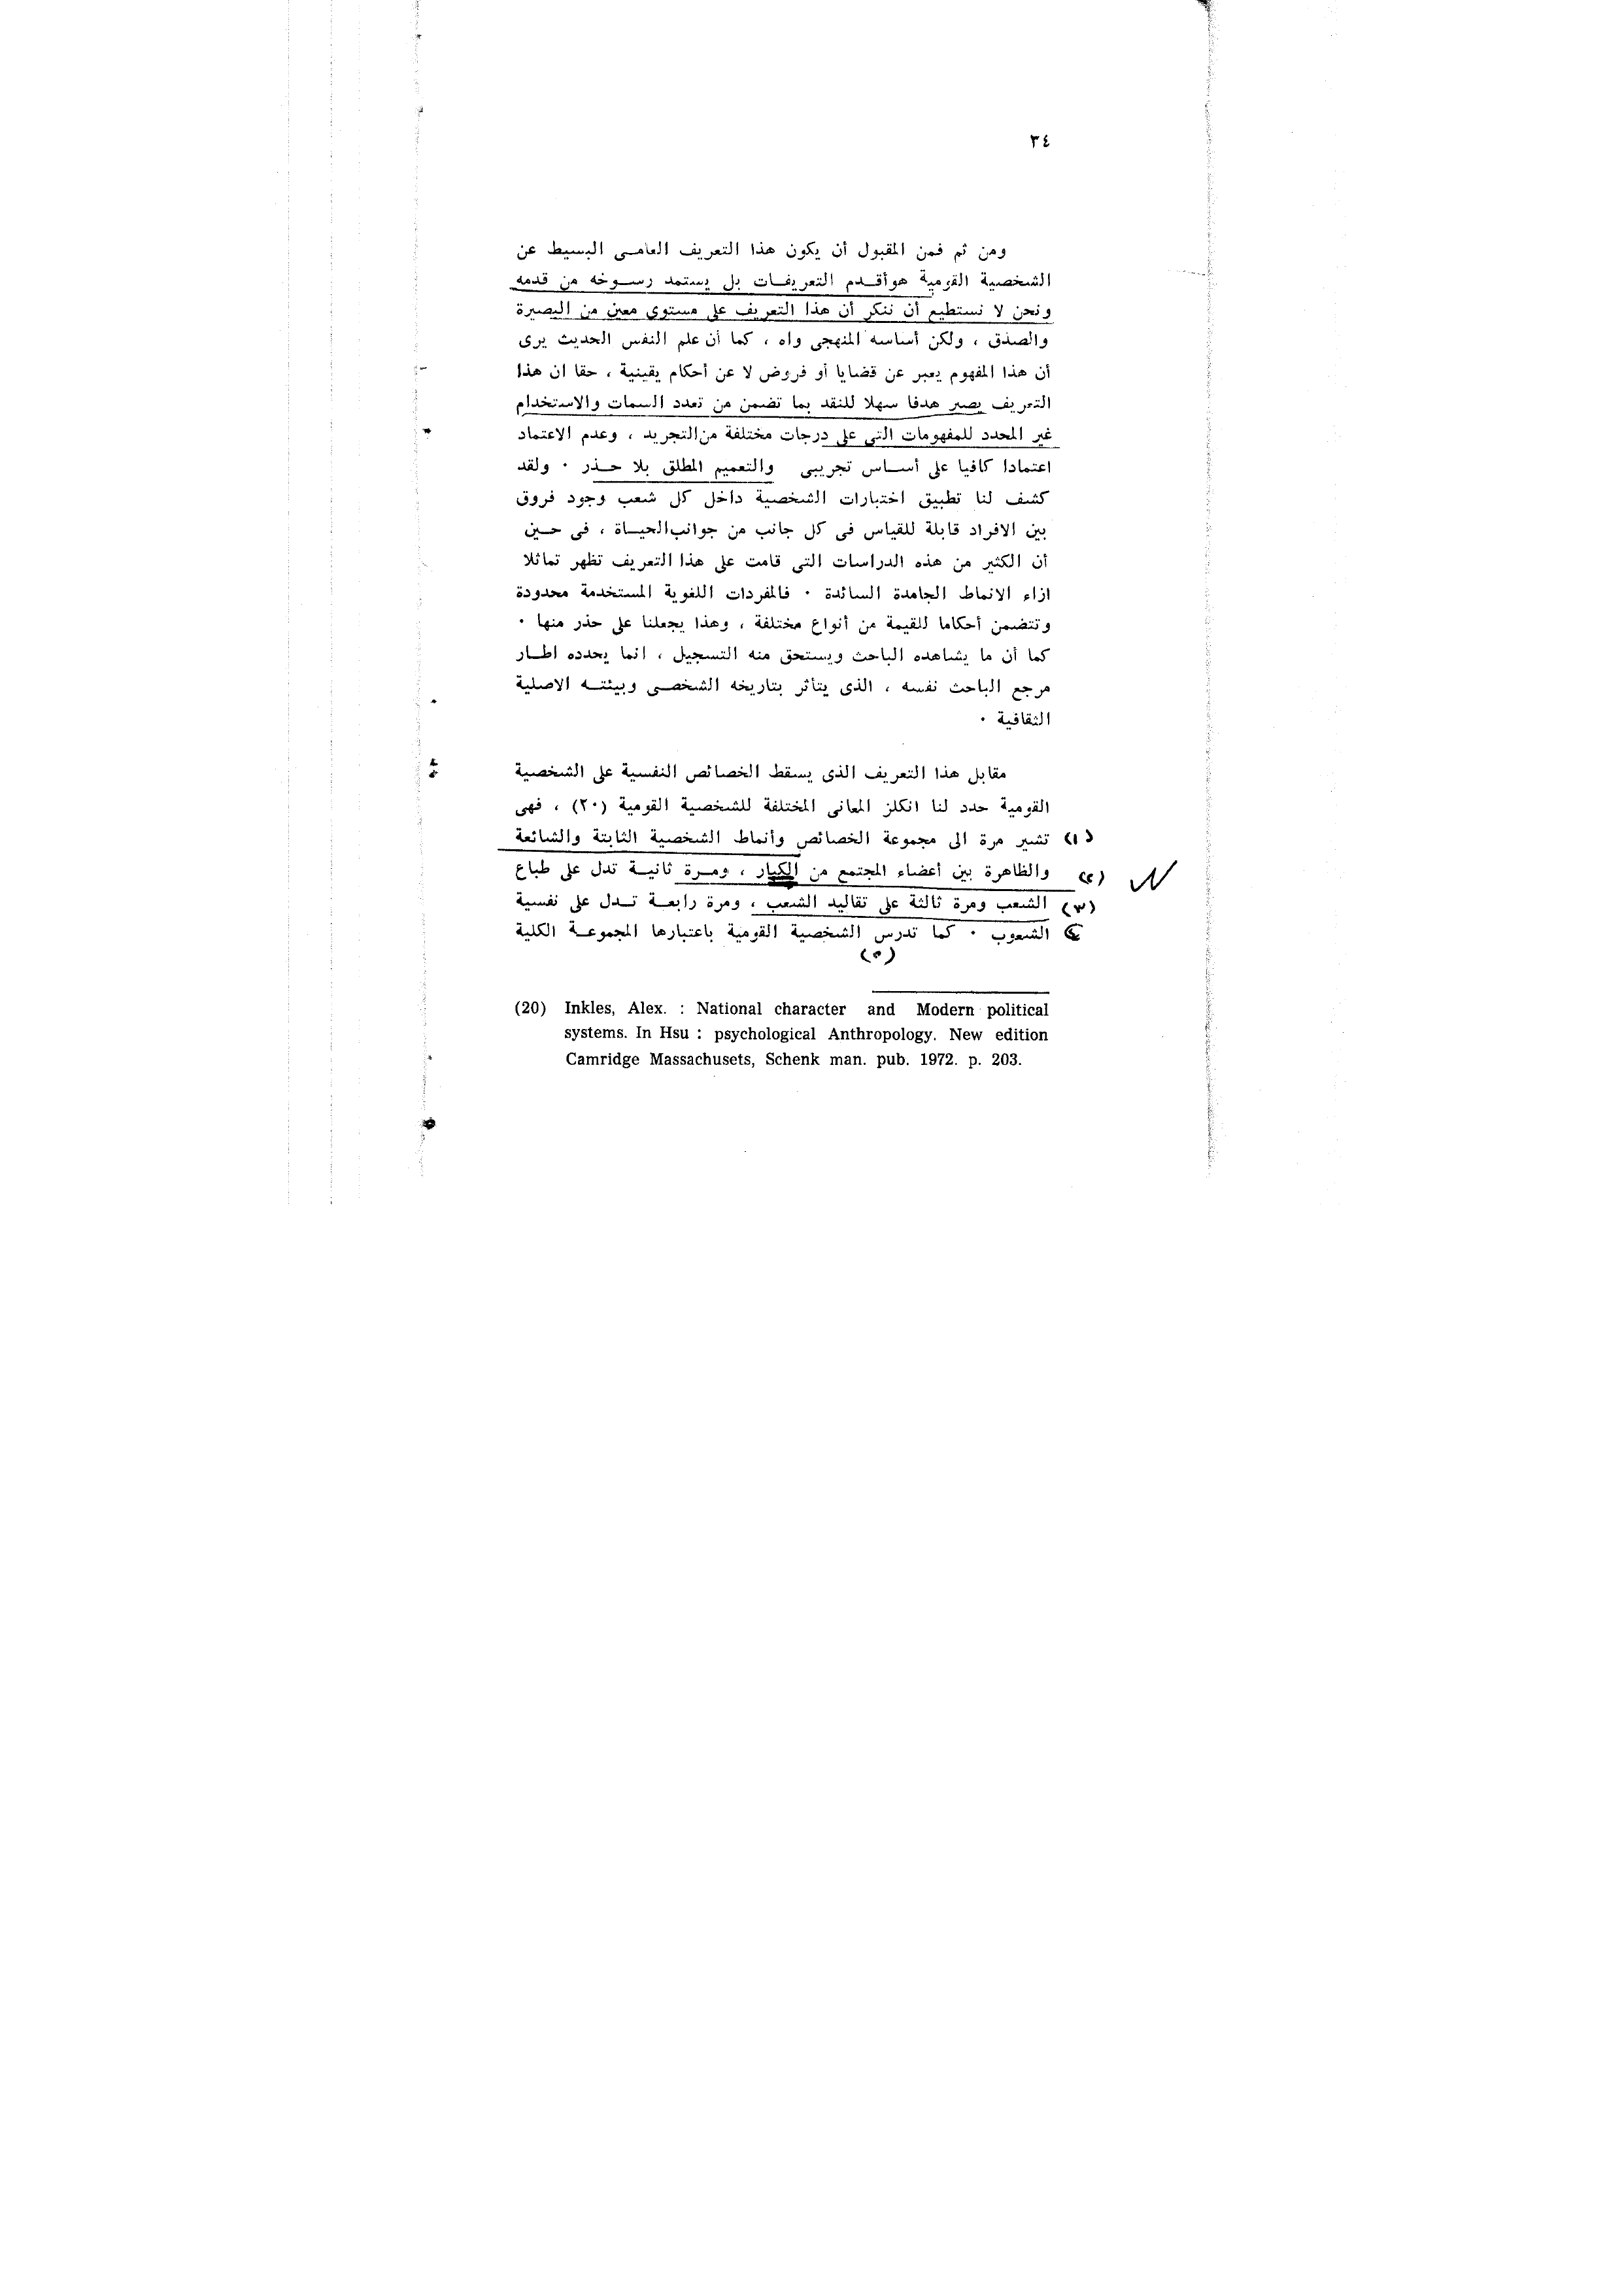 ٣٤
ومن ثم فمن المقبول أن يكون هذا التعريف العامى البسيط عن
الشخصية القومية هوأقدم التعريفات بل يستمد رسوخه من قدمه
ونحن لا نستطيع أن ننكر أن هذا التعريف على مستوى معين من البصيرة
والصدق ، ولكن أساسه المنهجى واه ، كما أن علم النفس الحديث يرى
أن هذا المفهوم يعبر عن قضايا أو فروض لا عن أحكام يقينية ، حقا ان هذا
التعريف يصير هدفا سهلا للنقد بما تضمن من تعدد السمات والاستخدام
غير المحدد للمفهومات التى على درجات مختلفة من التجريد ، وعدم الاعتماد
اعتمادا كافيا على أساس تجريبى والتعميم المطلق بلا حذر . ولقد
كشف لنا تطبيق اختبارات الشخصية داخل كل شعب وجود فروق
بين الافراد قابلة للقياس فى كل جانب من جوانب الحياة ، فى حين
أن الكثير من هذه الدراسات التى قامت على هذا التعريف تظهر تماثلا
ازاء الانماط الجامدة السائدة . فالمفردات اللغوية المستخدمة محدودة
وتتضمن أحكاما للقيمة من أنواع مختلفة ، وهذا يجعلنا على حذر منها .
كما أن ما يشاهده الباحث ويستحق منه التسجيل ، انما يحدده اطار
مرجع الباحث نفسه ، الذى يتأثر بتاريخه الشخصى وبيئته الاصلية
الثقافية .
مقابل هذا التعريف الذى يسقط الخصائص النفسية على الشخصية
القومية حدد لنا انكلز المعانى المختلفة للشخصية القومية (٢٠) ، فهى
(١) تشير مرة الى مجموعة الخصائص وأنماط الشخصية الثابتة والشائعة
(٢) والظاهرة بين أعضاء المجتمع من الكبار ، ومرة ثانية تدل على طباع
(٣) الشعب ومرة ثالثة على تقاليد الشعب ، ومرة رابعة تدل على نفسية
الشعوب . كما تدرس الشخصية القومية باعتبارها المجموعة الكلية
(٥)
(20) Inkles, Alex. : National character and Modern political
systems. In Hsu : psychological Anthropology. New edition
Camridge Massachusets, Schenk man. pub. 1972. p. 203.